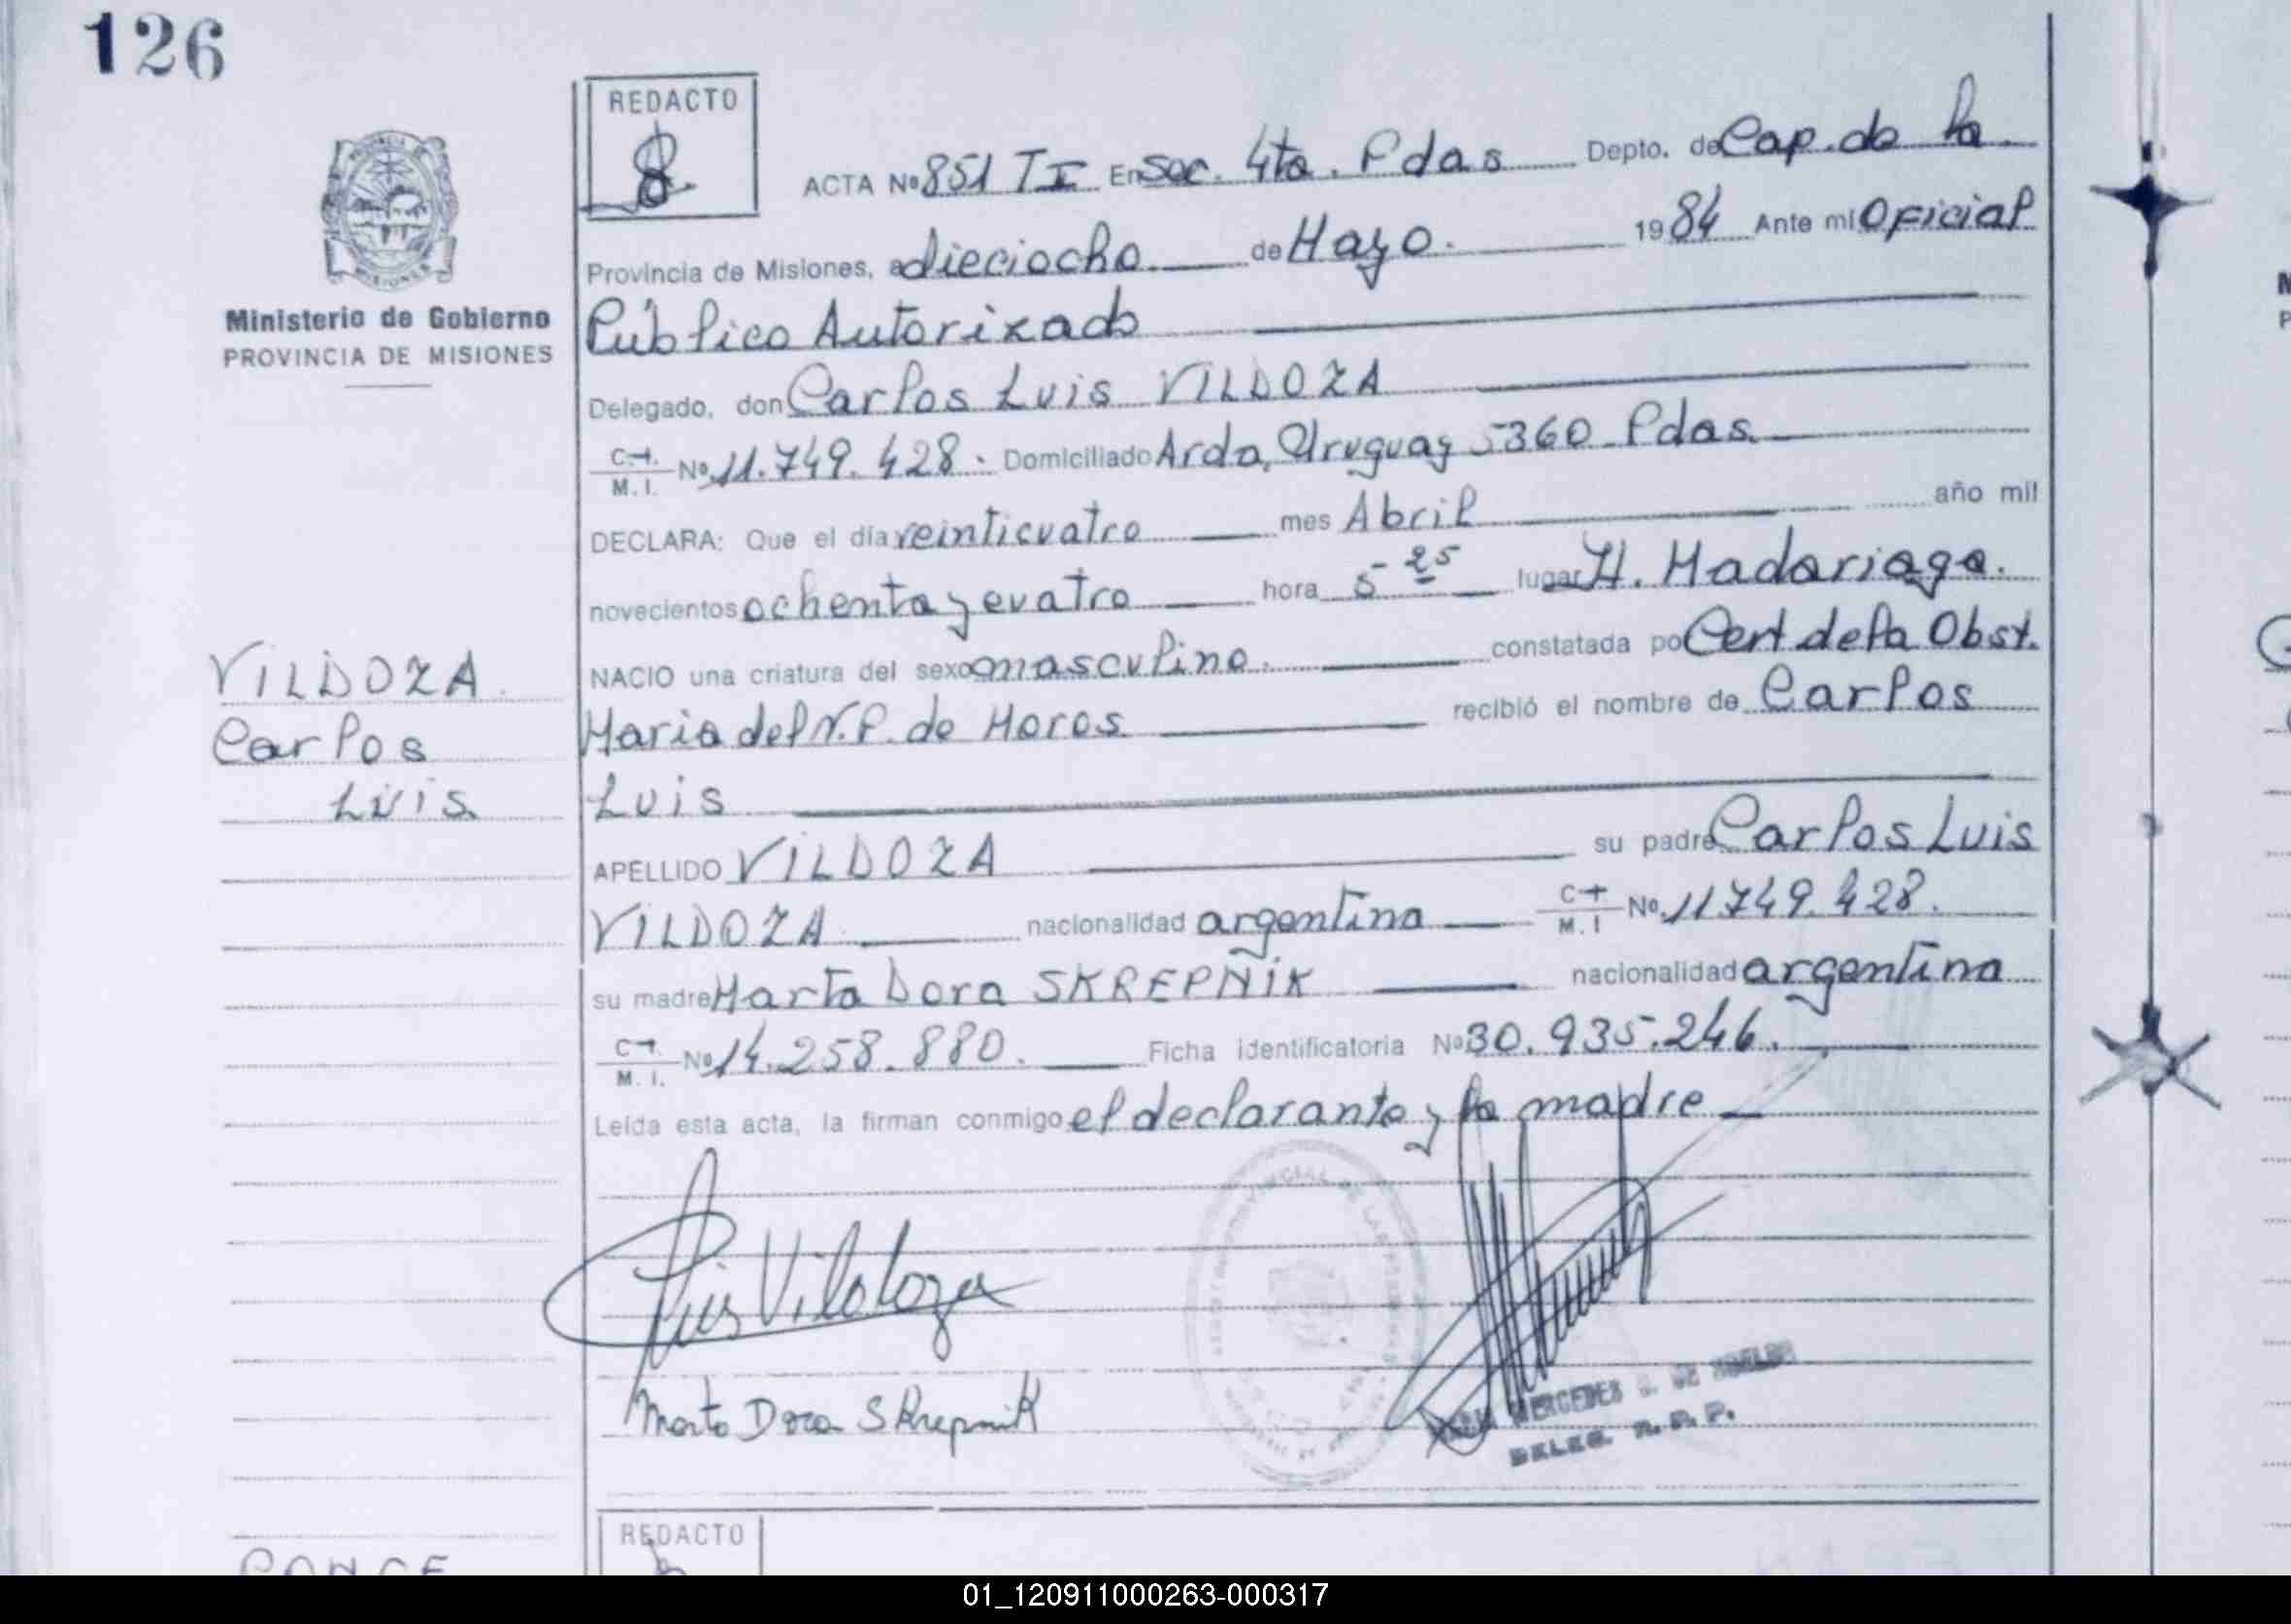 126
REDACTO
ACTA Nº 851 TI En Sec. 4ta. Pdas Depto. de Cap. de la
Provincia de Misiones, a dieciocho de Mayo. 1984 Ante mí Oficial
Público Autorizado
Ministerio de Gobierno
PROVINCIA DE MISIONES
Delegado, don Carlos Luis VILDOZA
C.I. M.I. Nº 11.749.428. Domiciliado Avda. Uruguay 5360 Pdas.
DECLARA: Que el día veinticuatro mes Abril año mil
novecientos ochenta y cuatro hora 5 25 lugar H. Madariaga.
NACIO una criatura del sexo masculino. constatada por Cert de la Obst.
Maria del V. P. de Moros recibió el nombre de Carlos
Luis
VILDOZA
Carlos
Luis
APELLIDO VILDOZA su padre Carlos Luis
VILDOZA nacionalidad argentina C.I. M.I Nº 11749.428.
su madre Marta Dora SKREPÑIK nacionalidad argentina
C.I. M.I. Nº 14.258.880. Ficha identificatoria Nº 30.935.246.
Leída esta acta, la firman conmigo el declarante y la madre
Luis Vildoza
Marta Dora Skrepnik
MERCEDES
DELEG. R. P. P.
REDACTO
PONCE
01_120911000263-000317